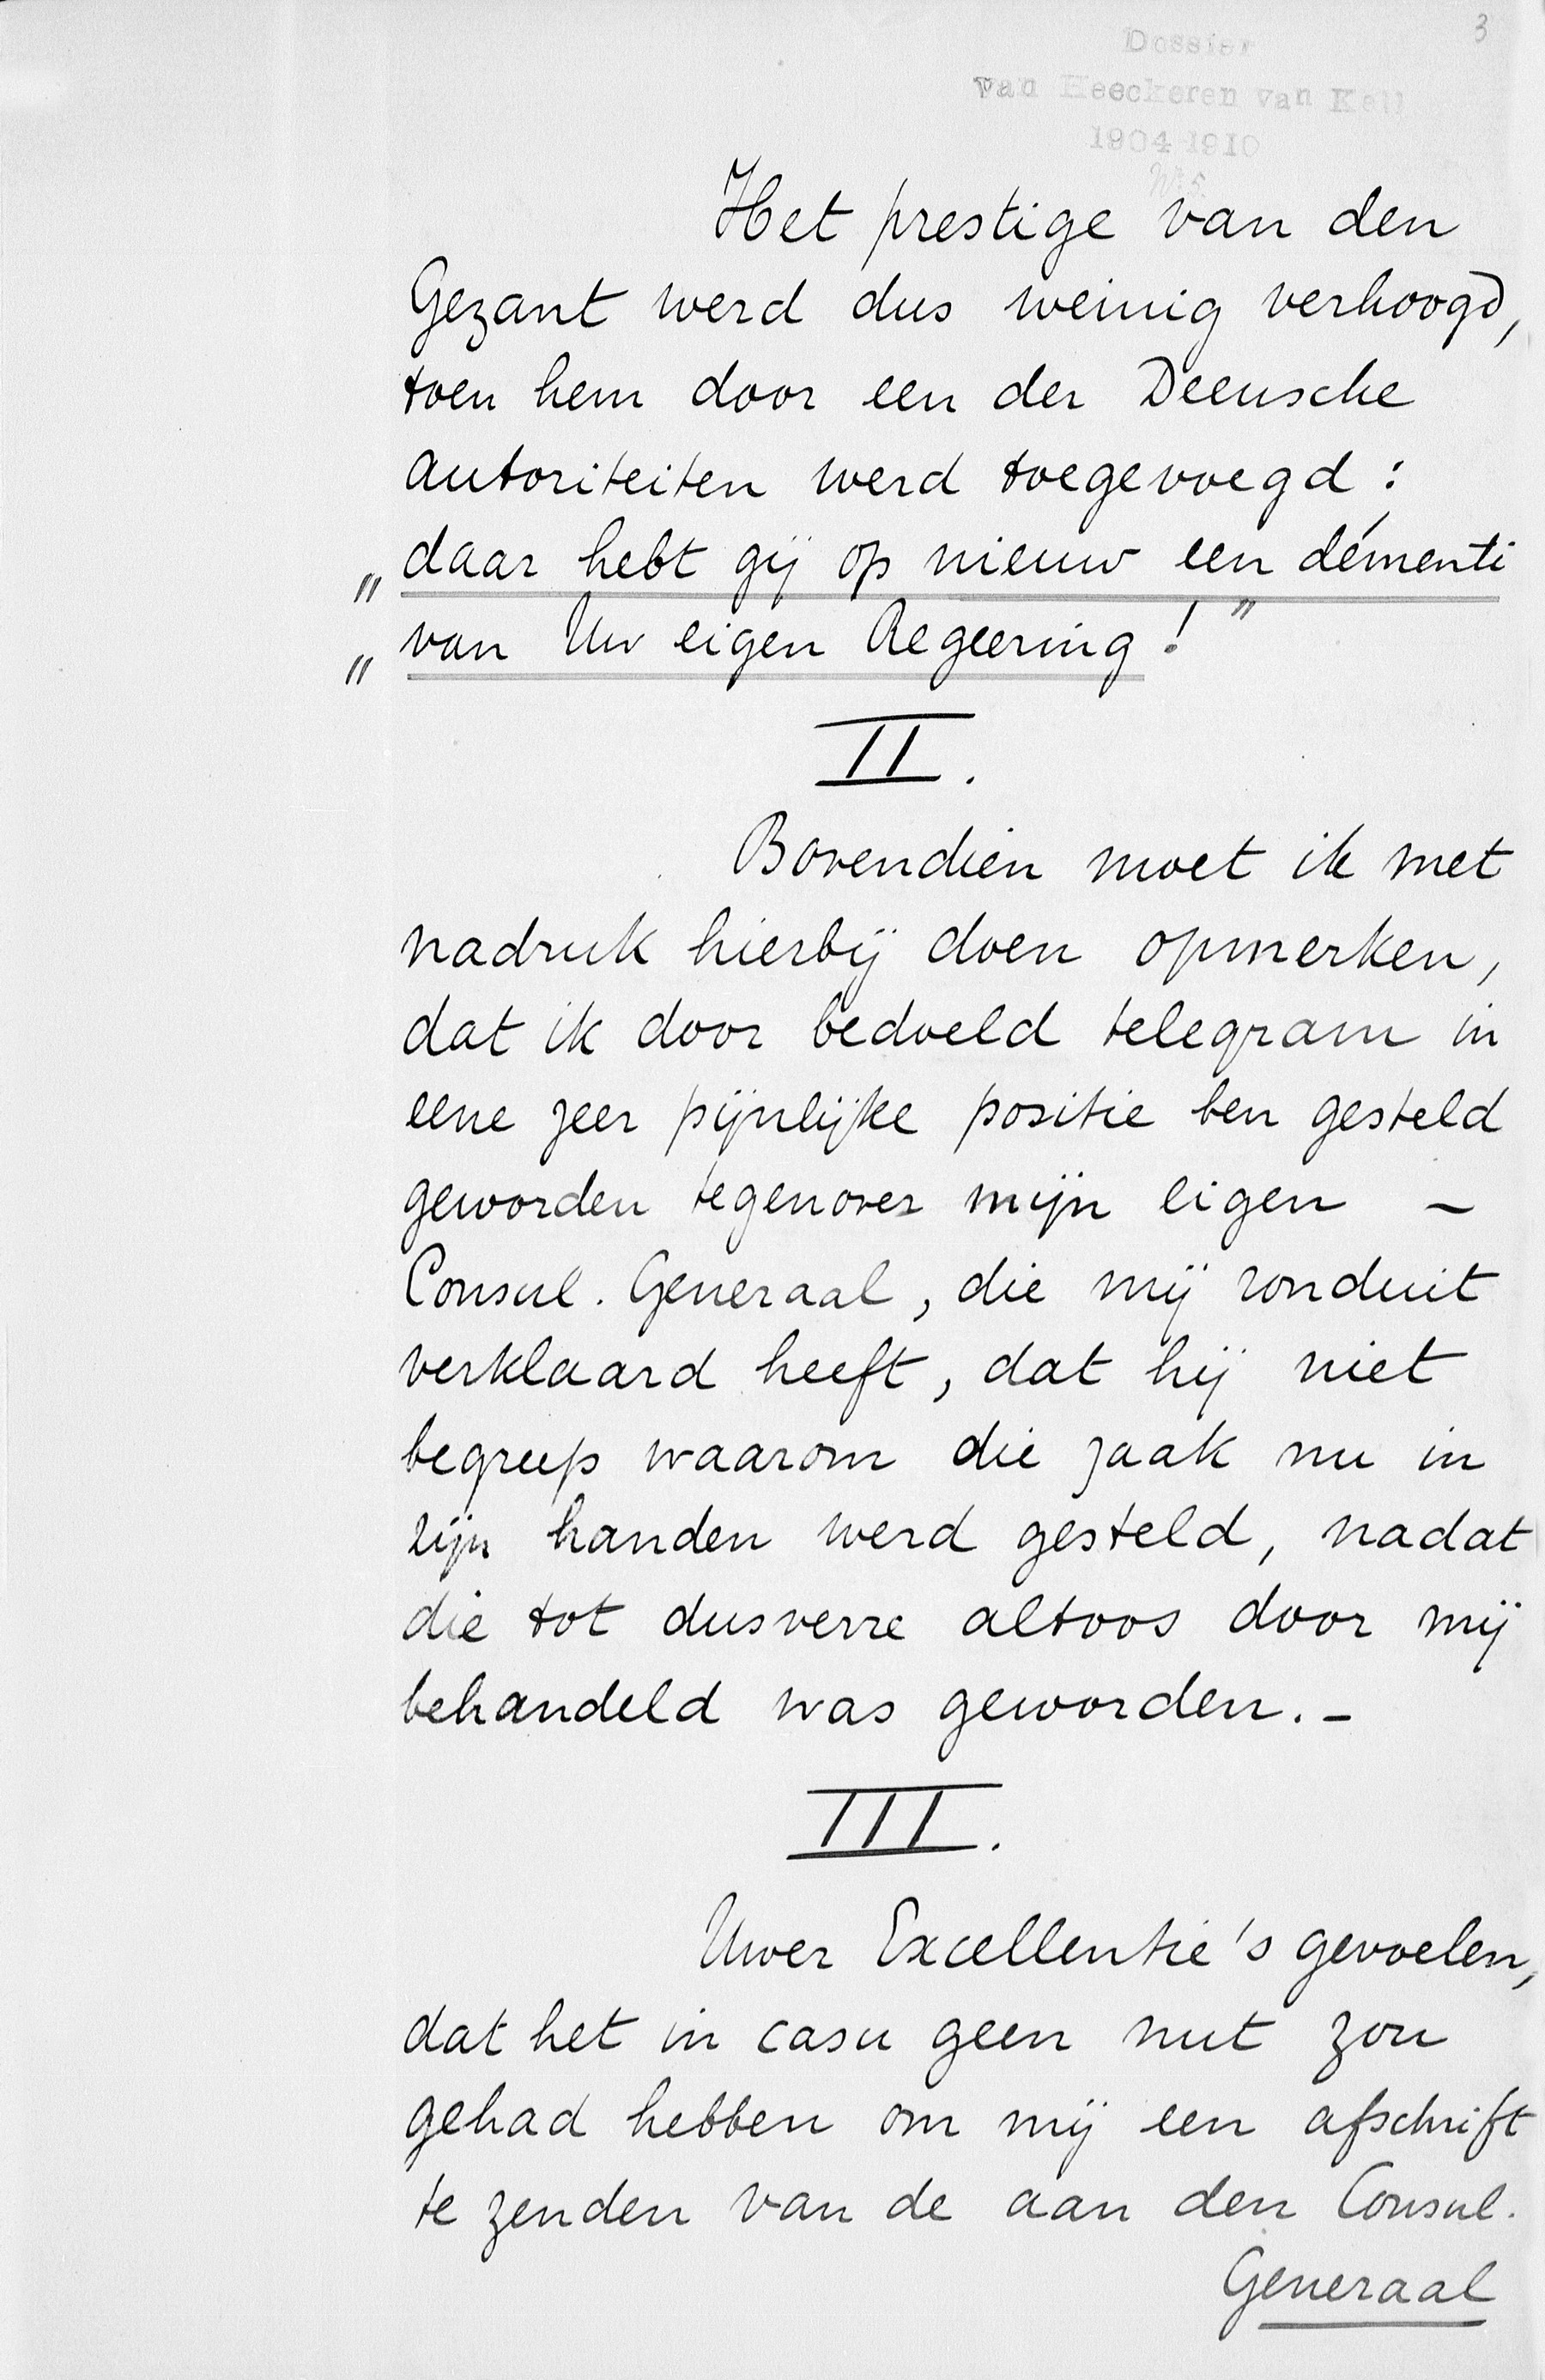 3
Dossier
van Heeckeren van Kell
1904-1910
No 5.
Het prestige van den
Gezant werd dus weinig verhoogd,
toen hem door een der Deensche
autoriteiten werd toegevoegd:
„daar hebt gij op nieuw een démenti
„van Uw eigen Regeering!"
II.
Bovendien moet ik met
nadruk hierbij doen opmerken,
dat ik door bedoeld telegram in
eene zeer pijnlijke positie ben gesteld
geworden tegenover mijn eigen –
Consul. Generaal, die mij ronduit
verklaard heeft, dat hij niet
begreep waarom die zaak nu in
zijn handen werd gesteld, nadat
die tot dusverre altoos door mij
behandeld was geworden. –
III.
Uwer Excellentie's gevoelen,
dat het in casu geen nut zou
gehad hebben om mij een afschrift
te zenden van de aan den Consul.
Generaal